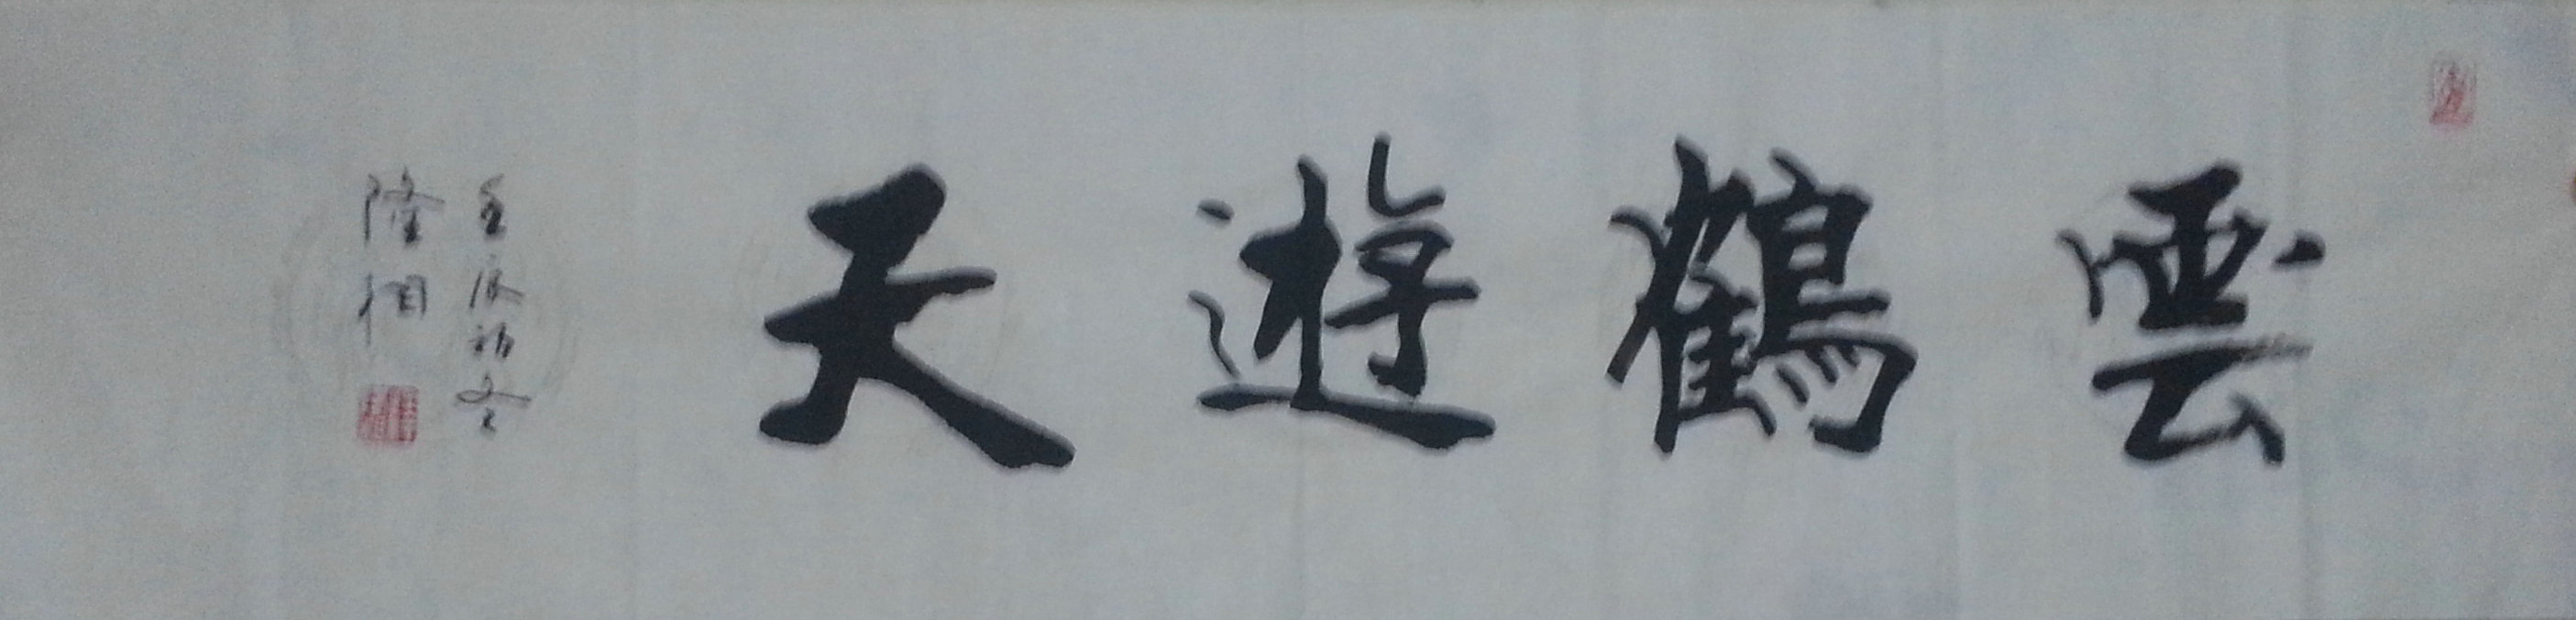 雲鶴遊天
壬辰初冬
隆相